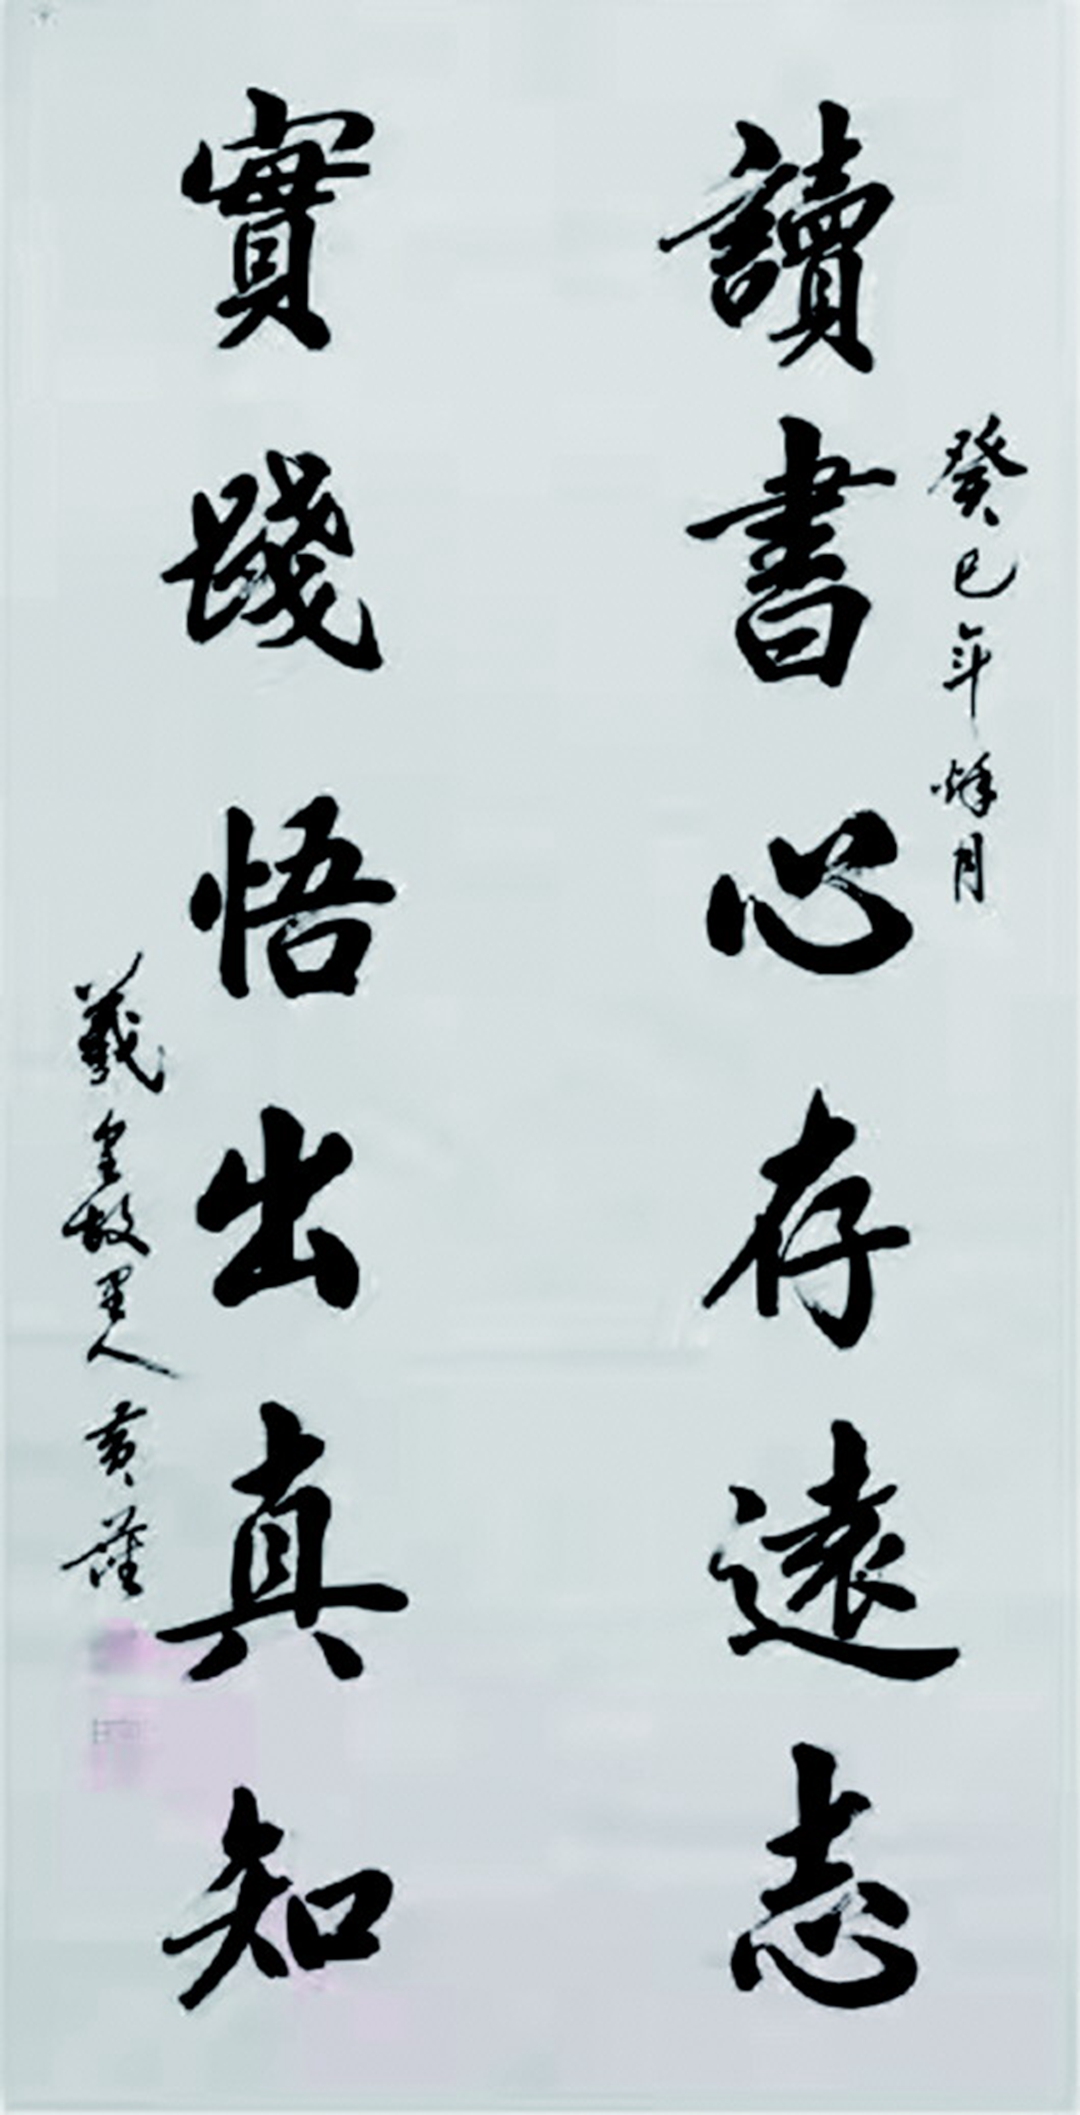 癸巳年秌月
讀書心存遠志
實踐悟出真知
羲皇故里人黄